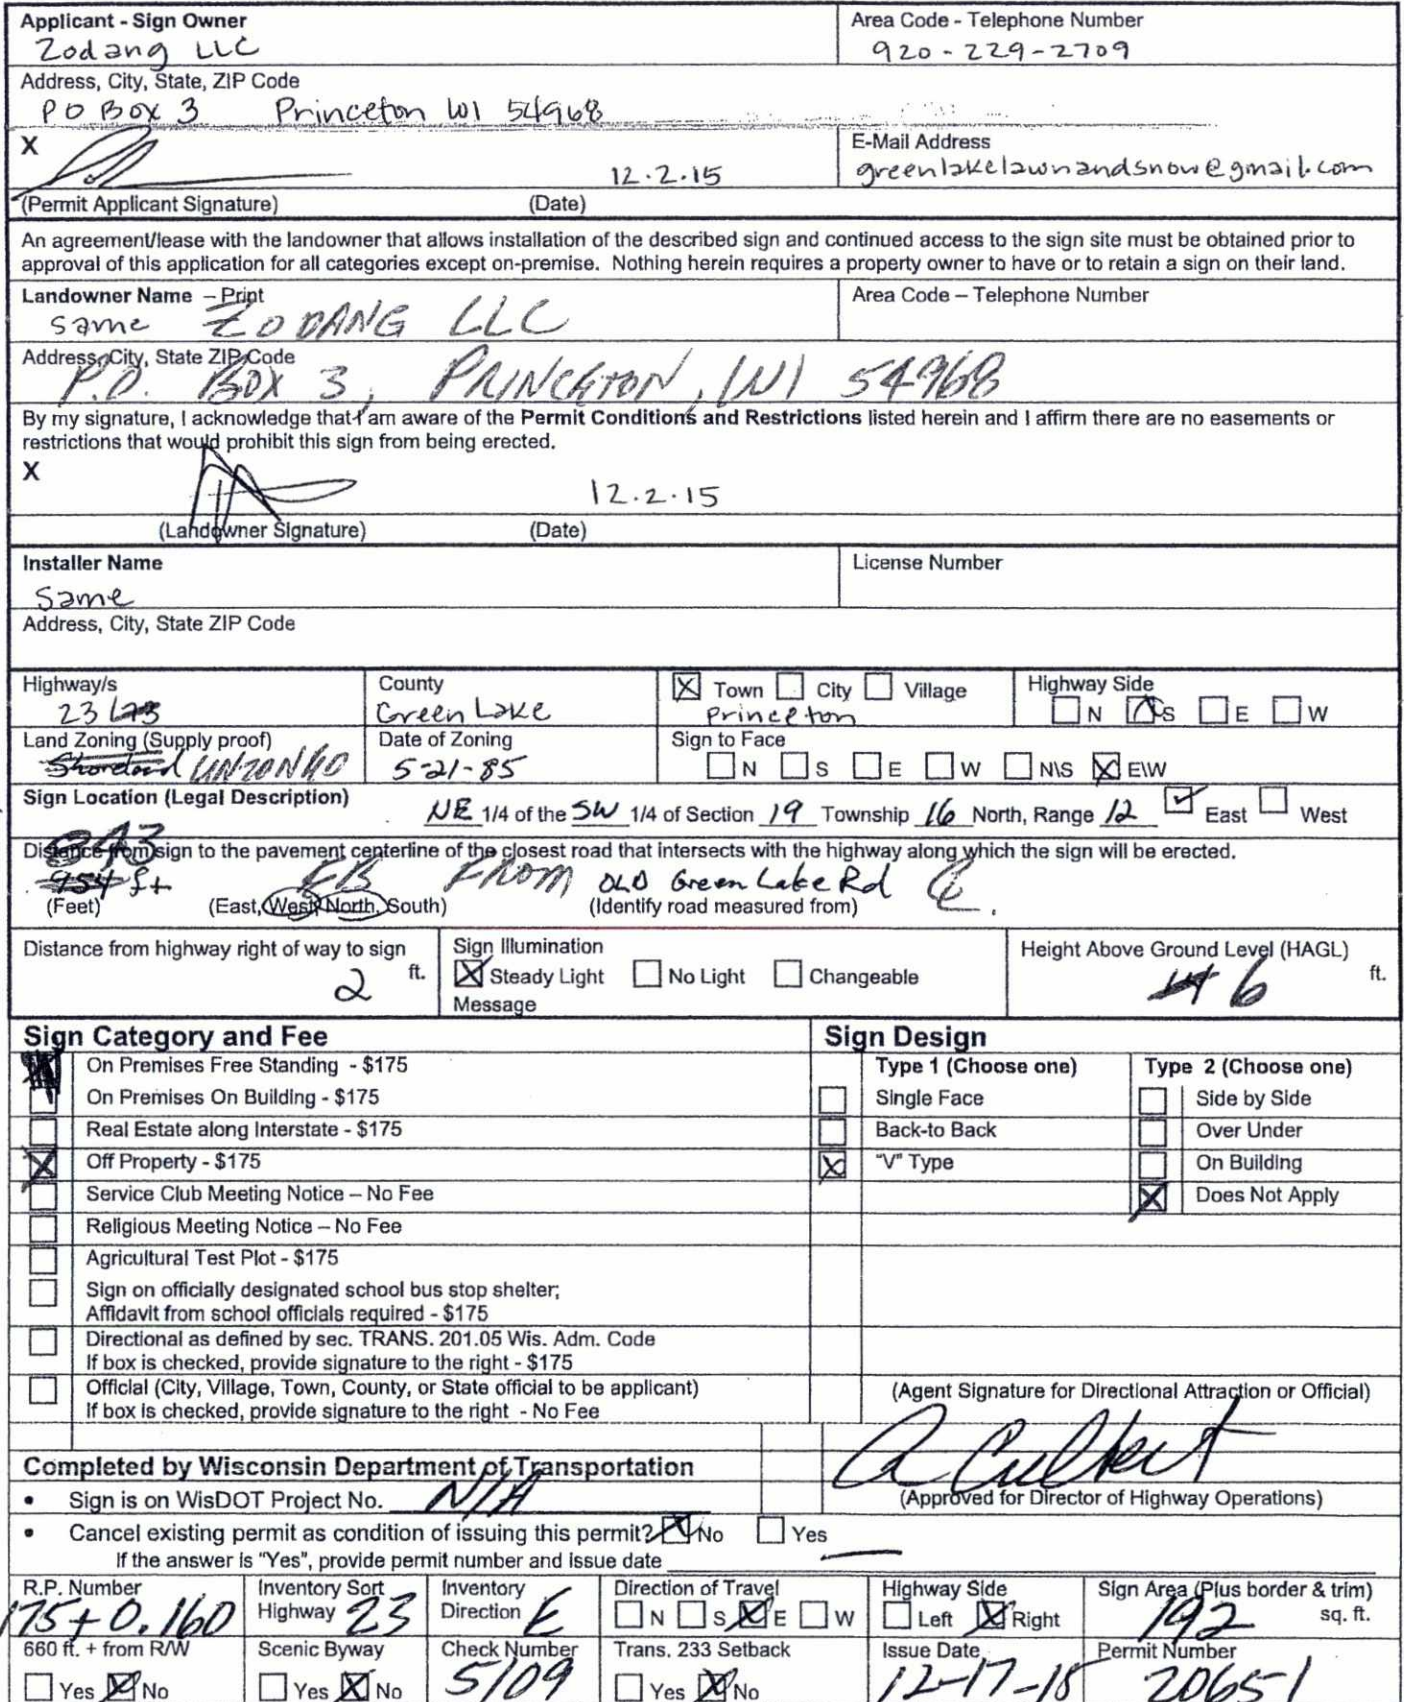 Applicant - Sign Owner
Zodang LLC
Area Code - Telephone Number
920-229-2709
Address, City, State, ZIP Code
PO Box 3 Princeton WI 54968
X
12.2.15
(Permit Applicant Signature) (Date)
E-Mail Address
greenlakelawnandsnow@gmail.com
An agreement/lease with the landowner that allows installation of the described sign and continued access to the sign site must be obtained prior to
approval of this application for all categories except on-premise. Nothing herein requires a property owner to have or to retain a sign on their land.
Landowner Name – Print
Same ZODANG LLC
Area Code – Telephone Number
Address, City, State ZIP Code
P.O. BOX 3, PRINCETON, WI 54968
By my signature, I acknowledge that I am aware of the Permit Conditions and Restrictions listed herein and I affirm there are no easements or
restrictions that would prohibit this sign from being erected.
X
12.2.15
(Landowner Signature) (Date)
Installer Name
Same
License Number
Address, City, State ZIP Code
Highway/s
23
County
Green Lake
Town City Village
Princeton
Highway Side
N S E W
Land Zoning (Supply proof)
UNZONED
Date of Zoning
5-21-85
Sign to Face
N S E W N\S E\W
Sign Location (Legal Description)
NE 1/4 of the SW 1/4 of Section 19 Township 16 North, Range 12 East West
Distance from sign to the pavement centerline of the closest road that intersects with the highway along which the sign will be erected.
ft EB FROM OLD Green Lake Rd
(Feet) (East, West, North, South) (Identify road measured from)
Distance from highway right of way to sign
2 ft.
Sign Illumination
Steady Light No Light Changeable
Message
Height Above Ground Level (HAGL)
6 ft.
Sign Category and Fee
On Premises Free Standing - $175
On Premises On Building - $175
Real Estate along Interstate - $175
Off Property - $175
Service Club Meeting Notice – No Fee
Religious Meeting Notice – No Fee
Agricultural Test Plot - $175
Sign on officially designated school bus stop shelter;
Affidavit from school officials required - $175
Directional as defined by sec. TRANS. 201.05 Wis. Adm. Code
If box is checked, provide signature to the right - $175
Official (City, Village, Town, County, or State official to be applicant)
If box is checked, provide signature to the right - No Fee
Sign Design
Type 1 (Choose one) Type 2 (Choose one)
Single Face Side by Side
Back-to Back Over Under
"V" Type On Building
Does Not Apply
(Agent Signature for Directional Attraction or Official)
A Culbert
(Approved for Director of Highway Operations)
Completed by Wisconsin Department of Transportation
• Sign is on WisDOT Project No. N/A
• Cancel existing permit as condition of issuing this permit? No Yes
If the answer is "Yes", provide permit number and issue date
R.P. Number
175+0.160
Inventory Sort
Highway 23
Inventory
Direction E
Direction of Travel
N S E W
Highway Side
Left Right
Sign Area (Plus border & trim)
192 sq. ft.
660 ft. + from R/W
Yes No
Scenic Byway
Yes No
Check Number
5109
Trans. 233 Setback
Yes No
Issue Date
12-17-15
Permit Number
20651